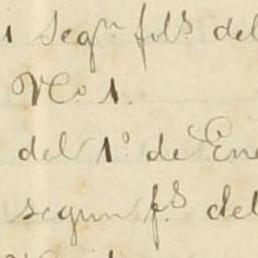 i Segn fols. del
No. 1.
del 1º de Ene
segun f.s del